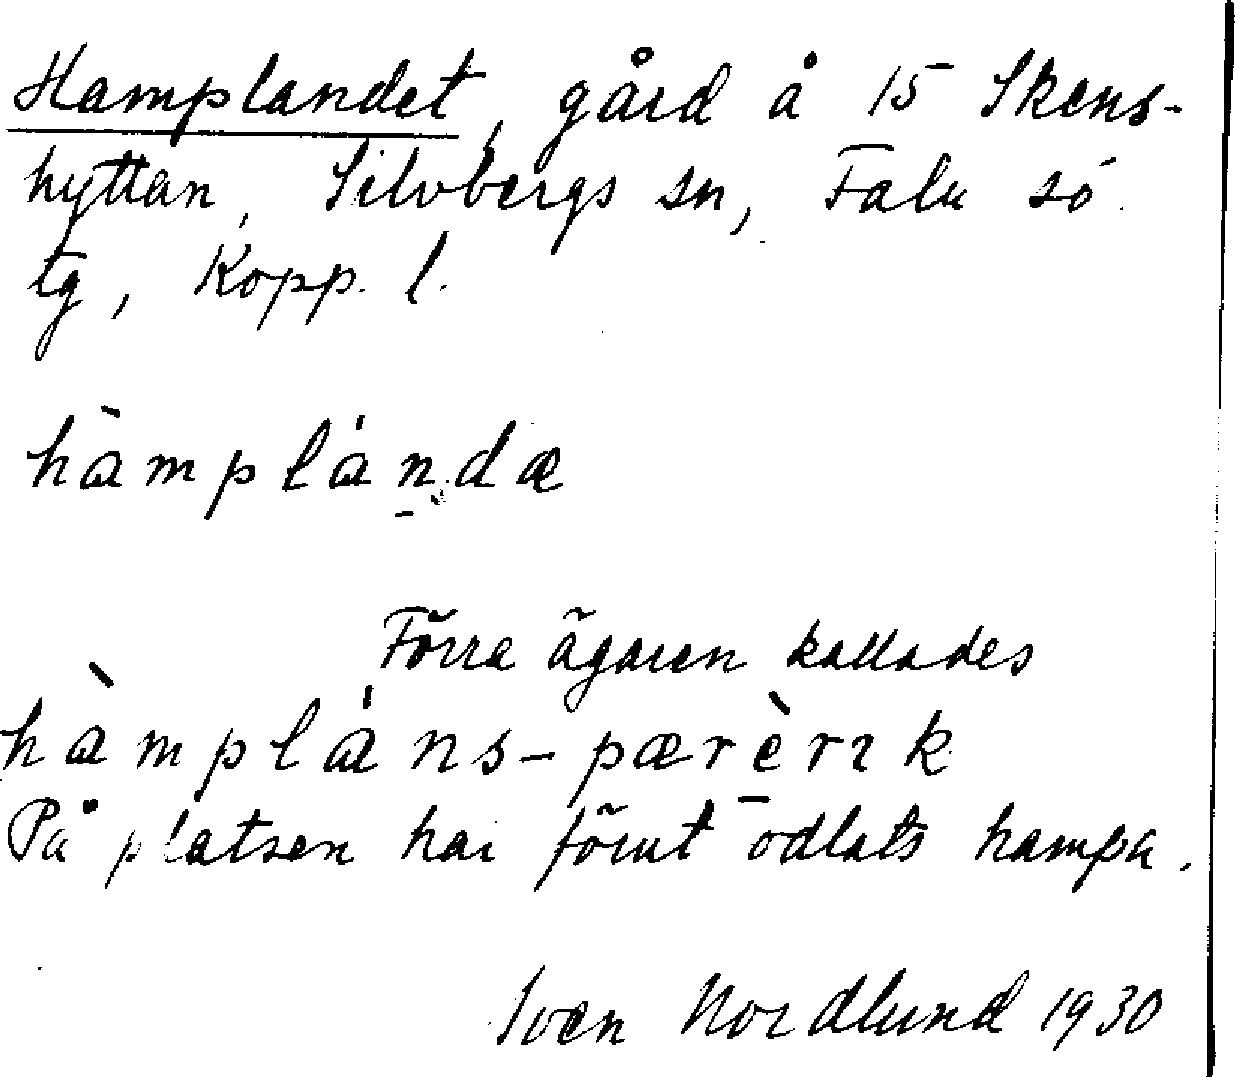 Hamplandet, gård å 15 Skens-
hyttan, Silvbergs sn, Falu sö
tg, Kopp. l.
hàmplándæ
Förre ägaren kallades
hàmpláns-pærèrık
På platsen har förut odlats hampa.
Sven Nordlund 1930